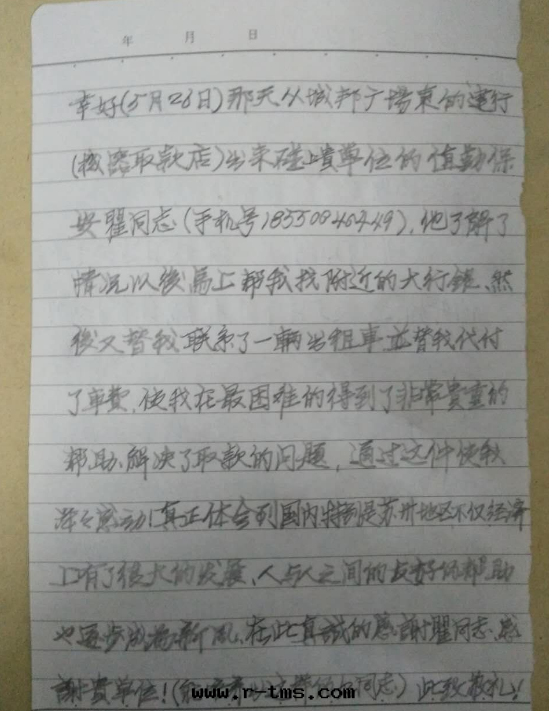 年 月 日
幸好(5月26日)那天从城邦广場東的建行
(機器取款店)出来碰上貴單位的值勤保
安瞿同志(手机号18550846449),他了解了
情况以後馬上帮我找附近的大行銀、然
後又替我联系了一輛出租車並替我代付
了車費,使我在最困难的得到了非常貴重的
帮助,解决了取款的问題,通过这件使我
深々感动!真正体会到国内特别是苏州地区不仅经济
上有了很大的发展、人与人之间的友好的帮助
也逐步成為新风,在此真誠的感謝瞿同志,感
謝貴單位! 同志)此致敬礼!
www.r-tms.com